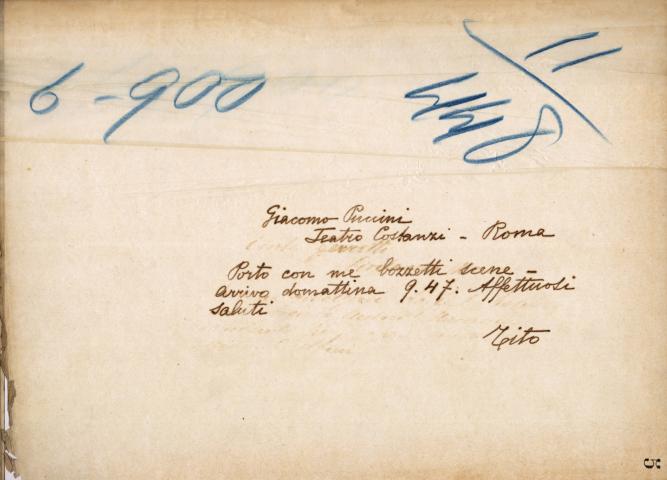 6-900
Giacomo Puccini
Teatro Costanzi - Roma
Porto con me bozzetti scene -
arrivo domattina 9.47. Affettuosi
saluti
Tito
5